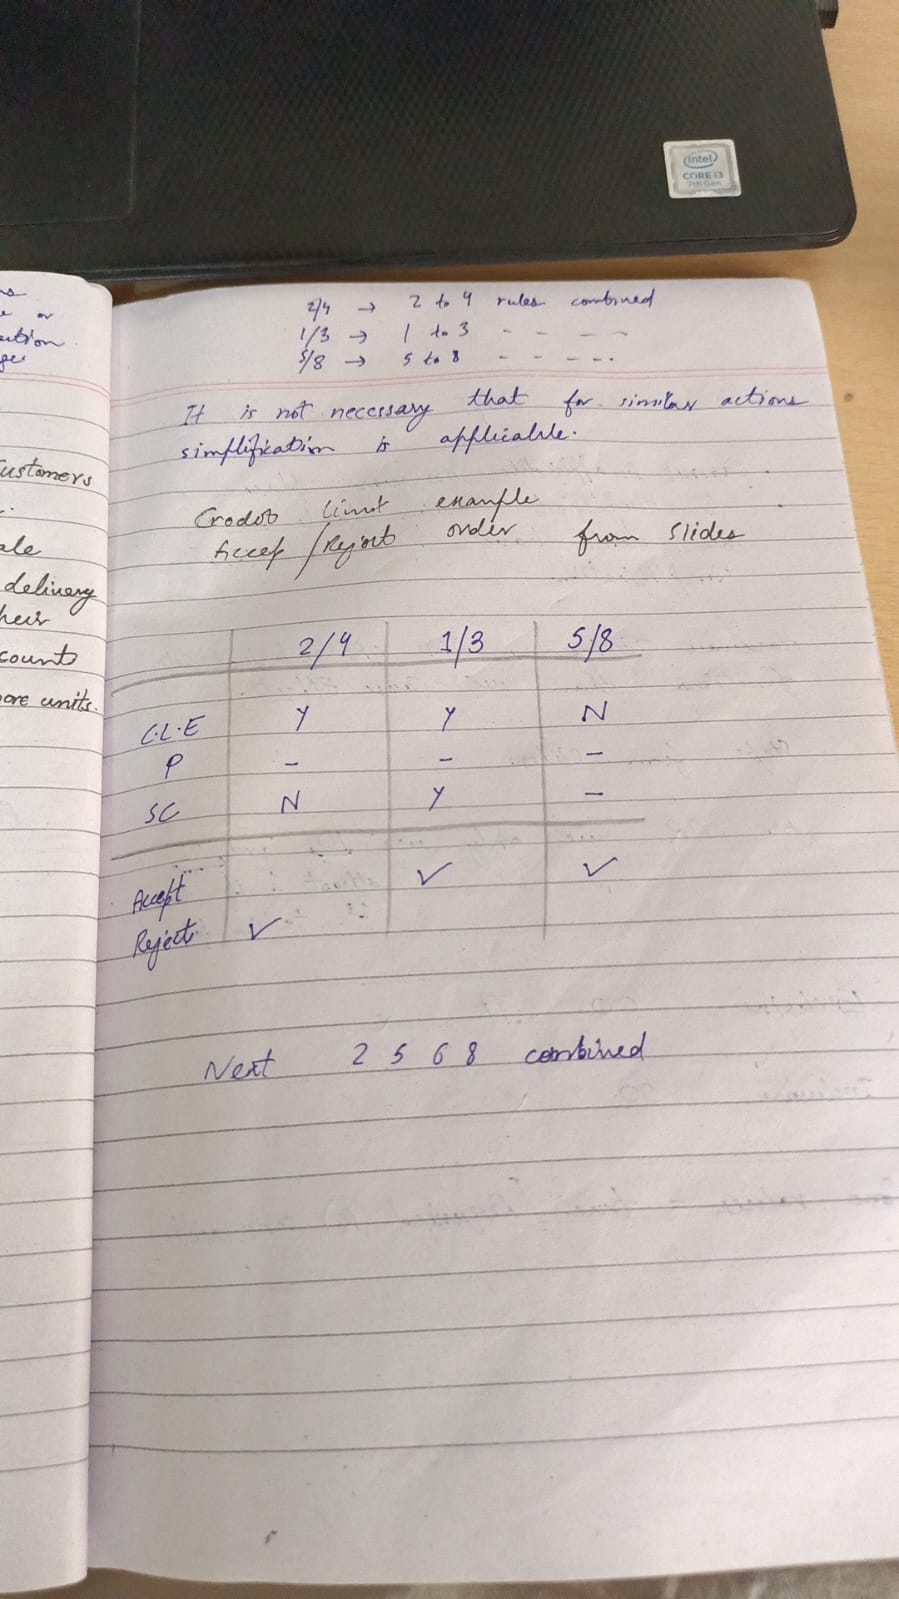 intel
CORE i3
7th Gen
or
ution
ustomers
ale
delivery
heir
counts
ore units.
2/4 → 2 to 4 rules combined
1/3 → 1 to 3 - - - -
5/8 → 5 to 8 - - - - -
It is not necessary that for similar actions
simplification is applicable.
limit example
/Reject order from slides
2/4 1/3 5/8
C.L.E Y Y N
P - - -
SC N Y -
Accept ✓ ✓
Reject ✓
Next 2 5 6 8 combined